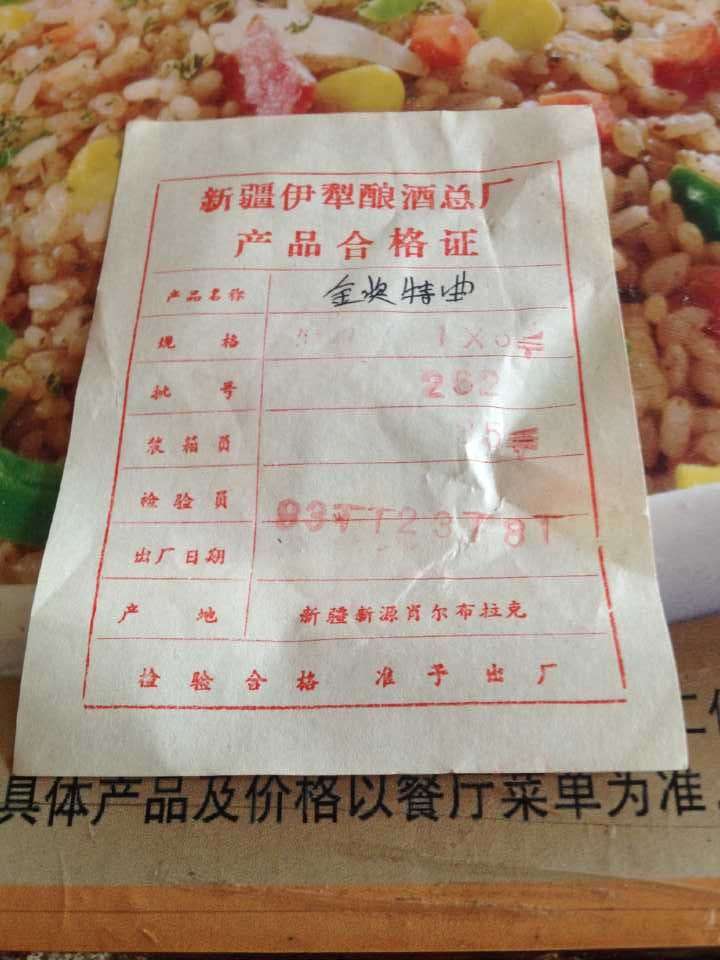 新疆伊犁酿酒总厂
产品合格证
产品名称 金奖特曲
规格
批号 262
装箱员
检验员
出厂日期
产地 新疆新源肖尔布拉克
检验合格 准予出厂
具体产品及价格以餐厅菜单为准